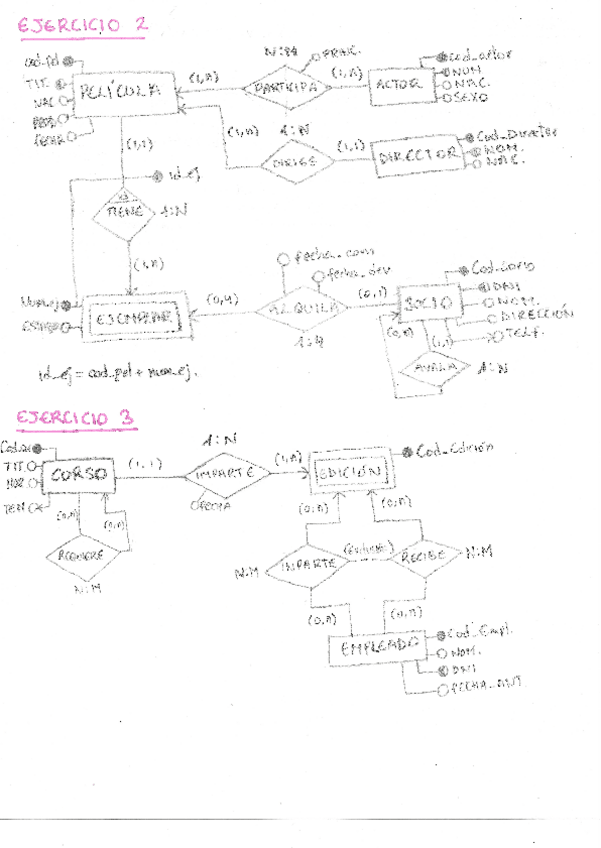 EJERCICIO 2
N:M
cod_pel
PRINC.
cod_actor
TIT.
(1,n)
(1,n)
NOM
PELÍCULA
PARTICIPA
ACTOR
NAC.
NAC
SEXO
(1,n)
1:N
(1,1)
(1,1)
DIRIGE
DIRECTOR
Cod_Director
NOM.
NAC.
id_ej
TIENE
1:N
fecha_com
(1,n)
fecha_dev
Cod_socio
Num_ej
(0,4)
(0,1)
DNI
EJEMPLAR
ALQUILA
SOCIO
NOM.
DIRECCIÓN
1:4
(0,n)
(1,1)
TELF.
AVALA
1:N
id_ej = cod_pel + num_ej.
EJERCICIO 3
1:N
TIT.
CURSO
(1,1)
IMPARTE
(1,n)
EDICIÓN
Cod_Edición
FECHA
(0,n)
(0,n)
(0,n)
(0,n)
REQUIERE
N:M
N:M
IMPARTE
RECIBE
N:M
(0,n)
(0,n)
EMPLEADO
Cod_Empl.
NOM.
DNI
FECHA_ANT